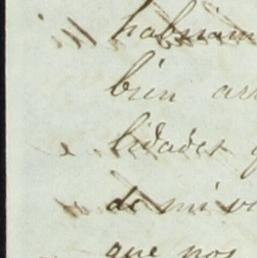 habiam
bien arr
lidades q
de mi vi
que nos